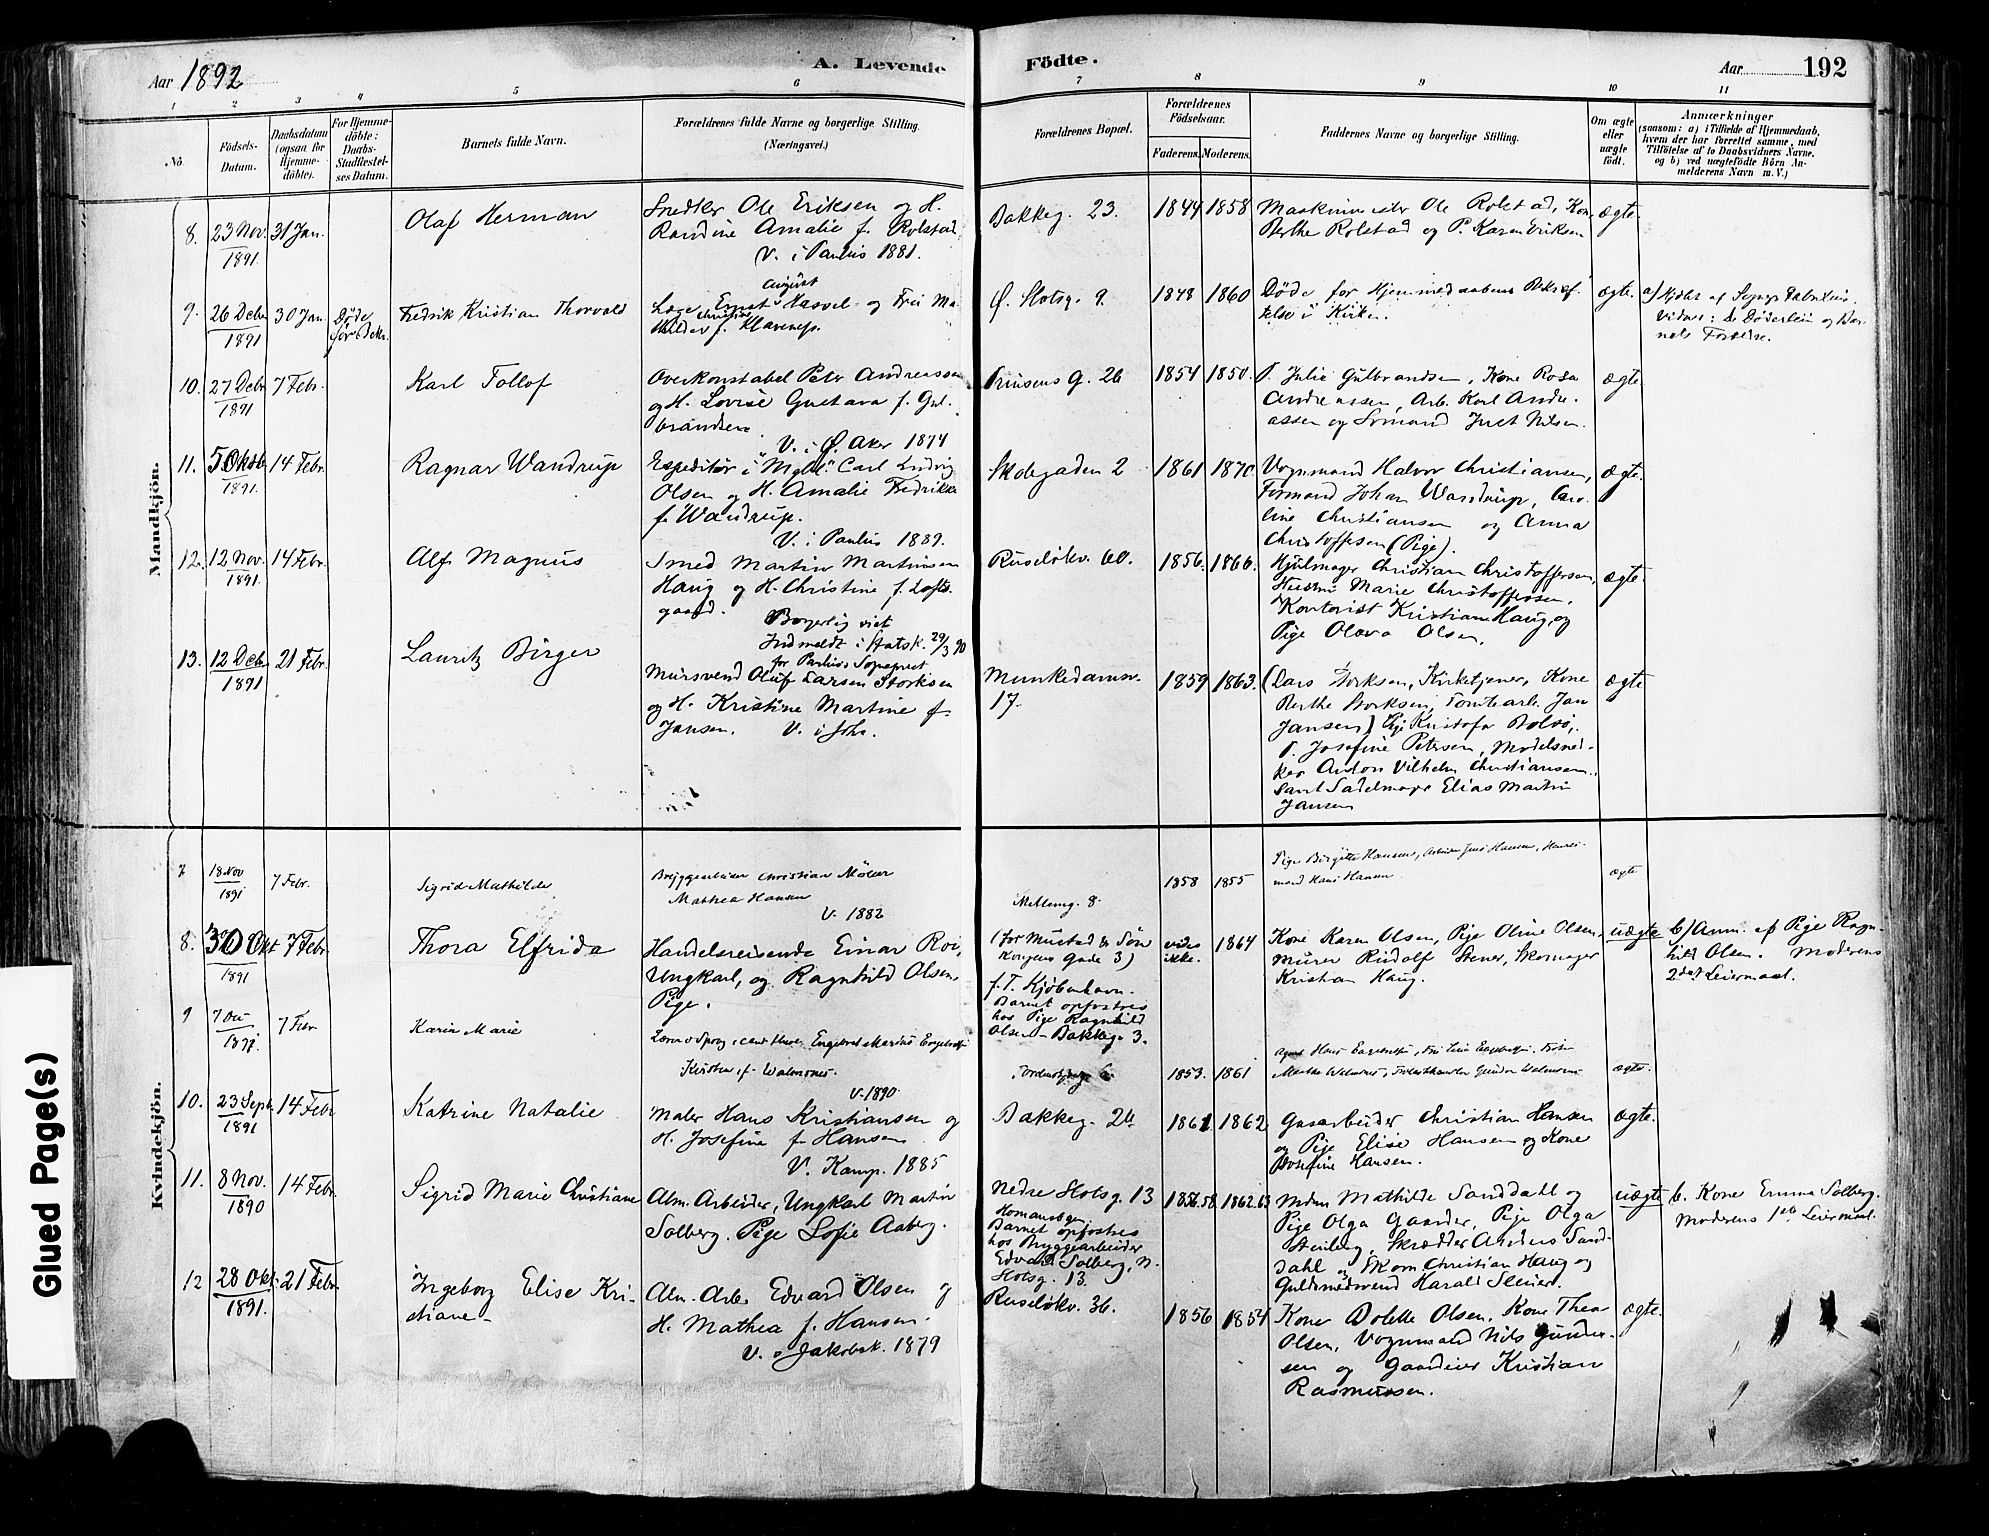 Aar 1892
A. Levende Födte.
Aar 192
1 2 3 4 5 6 7 8 9 10 11
No
Födsels-Datum.
Daabsdatum (ogsaa for Hjemmedöbte).
For Hjemmedöbte: Daabs-Stadfæstelses Datum.
Barnets fulde Navn.
Forældrenes fulde Navne og borgerlige Stilling. (Næringsvei.)
Forældrenes Bopæl.
Forældrenes Födselsaar.
Faderens. Moderens.
Faddernes Navne og borgerlige Stilling.
Om ægte eller uægte födt.
Anmærkninger
(saasom: a) i Tilfælde af Hjemmedaab,
hvem der har forrettet samme, med
Tilföielse af to Daabsvidners Navne,
og b) ved uægtefödte Börn Anmelderens Navn m. V.)
Mandkjön.
8. 23 Nov. 1891 31 Jan. Olaf Herman
Snedker Ole Eriksen og H.
Randine Amalie f. Rolstad
V. i Paulus 1881.
Bakkeg. 23. 1844 1858
Maskinmester Ole Rolstad, Kone
Berthe Rolstad og P. Karen Eriksen
ægte.
9. 26 Decbr 1891 30 Jan. Døde før Bekr. Fredrik Kristian Thorvald
Læge Ernst August Hassel og Fru Ma-
thilde Christine f. Klavenes.
Ø. Slotsg. 9. 1848 1860
Døde før Hjemmedaabens Bekræf-
telse i Kirken.
ægte.
a) Hjdøbt af Sogns
Vidner: Dr Døderlein og Bar-
nets Forældre.
10. 27 Decbr 1891 7 Febr. Karl Tollof
Overkonstabel Peter Andreassen
og H. Lovise Gustava f. Gul-
brandsen.
V. i Ø. Aker 1874
Prinsens G. 26 1854 1850.
P. Julie Gulbrandsen, Kone Rosa
Andreassen, Arb. Karl Andre-
assen og Sømand Just Nilsen.
ægte
11. 5 Oktb 1891. 14 Febr. Ragnar Wandrup
Expeditør i "Mgbl." Carl Ludvig
Olsen og H. Amalie Fredrikke
f. Wandrup.
V. i Paulus 1889.
Skolegaden 2 1861 1870
Vognmand Halvor Christiansen,
Formand Johan Wandrup, Caro-
line Christiansen og Anna
Christoffesen (Pige).
ægte.
12. 12 Nov. 1891. 14 Febr. Alf Magnus
Smed Martin Martinsen
Haug og H. Christine f. Lofts-
gaard.
Borgerlig viet
Indmeldt i Statsk. 29/3 90
for Paulus Sogneprest
Ruseløkv. 60. 1856. 1866.
Hjulmager Christian Christoffersen,
Hustru Marie Christoffersen,
Kontorist Kristian Haug, og
Pige Olava Olsen.
ægte.
13. 12 Decbr 1891 21 Febr. Lauritz Birger
Mursvend Oluf Larsen Storksen
og H. Kristine Martine f.
Jansen. V. i Joh.
Munkedamsv.
17.
1859 1863.
(Lars Storksen, Kirketjener, Kone
Berthe Storksen, Tomtearb. Jan
Jansen) Pige Kristofa Bolsø,
P. Josefine Petersen, Modelsned-
ker Anton Vilhelm Christiansen,
samt Sadelmager Elias Martin
Jansen
ægte
Kvindekjön.
7 18 Nov 1891 7 Febr. Sigrid Mathilde
Bryggearbeider Christian Möller
Mathea Hansen
V. 1882
Mellemg. 8. 1858 1855
Pige Birgitte Hansen, Arbeider Jens Hansen,
mand Hans Hansen.
ægte
8. 30 Okt 1891 7 Febr. Thora Elfrida
Handelsreisende Einar Roi,
Ungkarl, og Ragnhild Olsen,
Pige.
(for Mustad & Søn
Kongens Gade 3)
f. T. Kjøbenhavn.
Barnet opfostres
hos Pige Ragnhild
Olsen - Bakkeg. 3.
vides ikke. 1864
Kone Karen Olsen, Pige Oline Olsen,
Murer Rudolf Stener, Skomager
Kristian Haug.
uægte
b) Anm. af Pige Ragn-
hild Olsen. Moderens
2det Leiermaal.
9 7 Dec 1891. 7 Febr Karin Marie
Engebret Marius Engebretsen
Kristine f. Walmsnes.
V. 1890.
1853. 1861
Agent Hans Engebretsen, Fru Lina Engebretsen,
ægte.
10. 23 Septr 1891 14 Febr Katrine Natalie
Maler Hans Kristiansen og
H. Josefine f. Hansen.
V. Kamp. 1885
Bakkeg. 24 1861 1862
Gasarbeider Christian Hansen
og Pige Elise Hansen og Kone
Josefine Hansen.
ægte.
11. 8 Nov. 1890 14 Febr. Sigrid Marie Christiane
Alm. Arbeider, Ungkarl Martin
Solberg. Pige Sofie Aaberg.
Nedre Slotsg. 13
Homansbyen
Barnet opfostres
hos Bryggearbeider
Edvard Solberg, N.
Slotsg. 13.
1857.58 1862.63
Mdm Mathilde Sanddahl og
Pige Olga Gaarder, Pige Olga
Stenberg, Skrædder Anders Sand-
dahl og Skom. Christian Haug og
Guldsmedsvend Harald Stener.
uægte
b. Kone Emma Solberg.
Moderens 1ste Leiermaal.
12 28 Okt. 1891. 21 Febr. Ingeborg Elise Kri-
stiane
Alm. Arb. Edvard Olsen og
H. Mathea f. Hansen.
V. i Jakobsk. 1879
Ruseløkv. 36. 1856 1854
Koner Dolette Olsen, Kone Thea
Olsen, Vognmand Nils Gunder-
sen og Gaardeier Kristian
Rasmussen.
ægte.
Glued Page(s)